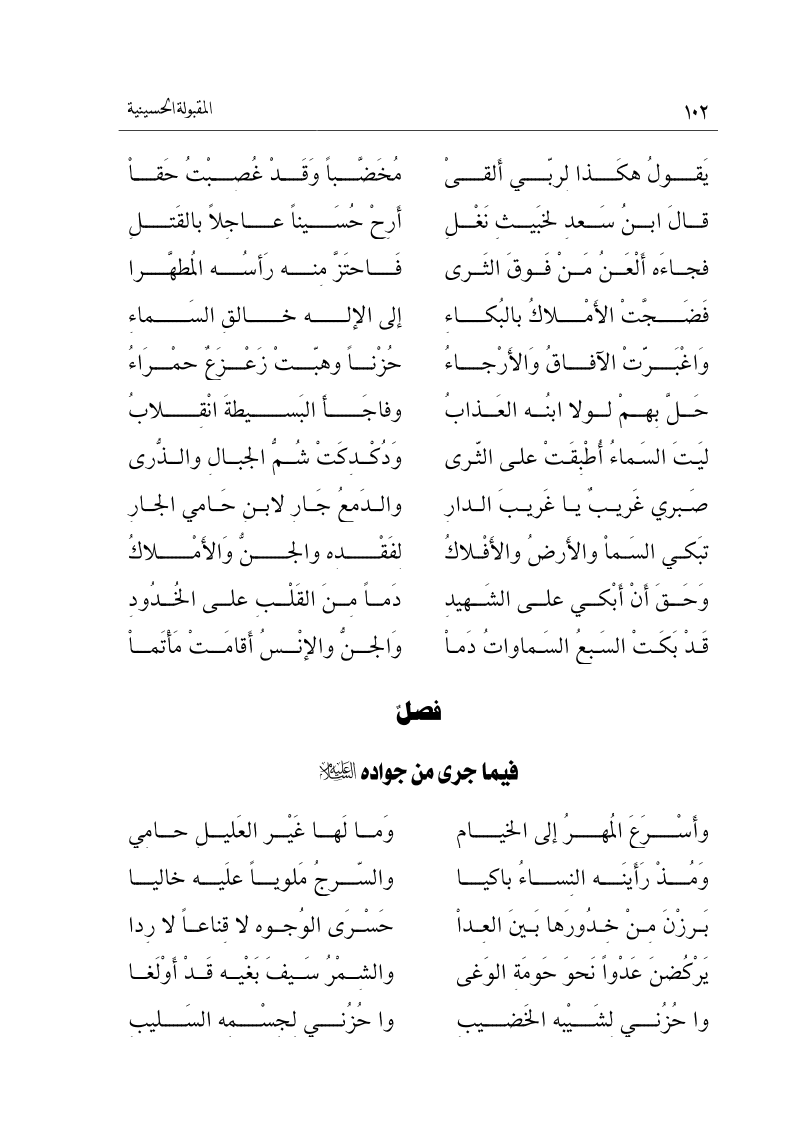 ١٠٢ المقبولة الحسينية
يَقولُ هكَذا لربّي أَلقىْ مُخَضَّباً وَقَدْ غُصبْتُ حَقاْ
قالَ ابنُ سَعدٍ لخَبيثٍ نَغْلِ أَرِحْ حُسَيناً عاجلاً بالقَتلِ
فجاءَه أَلْعَنُ مَنْ فَوقَ الثَرى فَاحتَزَّ منه رَأسُه المُطهَّرا
فَضَجَّتْ الأَمْلاكُ بالبُكاء إلى الإله خالقِ السَماء
وَاغْبَرّتْ الآفاقُ وَالأَرْجاءُ حُزْناً وهبّتْ زَعْزَعٌ حمْرَاءُ
حَلَّ بهمْ لولا ابنُه العَذابُ وفاجَأ البَسيطةَ انْقلابُ
ليَتَ السَماءُ أُطْبقَتْ على الثّرى وَدُكْدكَتْ شُمُّ الجبال والذُّرى
صَبري غَريبٌ يا غَريبَ الدارِ والدَمعُ جَارٍ لابنِ حَامي الجارِ
تبَكي السَماْ والأرضُ والأَفْلاكُ لفَقْده والجنُّ وَالأَمْلاكُ
وَحَقَ أَنْ أَبْكي على الشَهيدِ دَماً منَ القَلْبِ على الخُدُودِ
قَدْ بَكَتْ السَبعُ السَماواتُ دَماْ وَالجنُّ والإنْسُ أَقامَتْ مَأْتَماْ
فصلٌ
فيما جرى من جواده عليه السلام
وأَسْرَعَ المُهرُ إلى الخيام وَما لَها غَيْر العَليلِ حامي
وَمُذْ رَأَينَه النساءُ باكيا والسّرجُ مَلوياً علَيه خاليا
بَرزْنَ منْ خدُورَها بَينَ العداْ حَسْرَى الوُجوه لا قناعاً لا ردا
يَرْكُضنَ عَدْواً نَحوَ حَومَةِ الوَغى والشمْرُ سَيفَ بَغْيه قَدْ أَوْلَغا
وا حُزُني لشَيْبه الخَضيبِ وا حُزُني لجسْمه السَليبِ